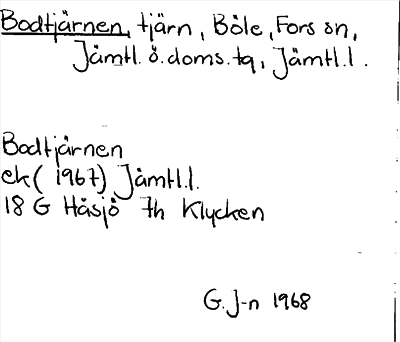 Bodtjärnen, tjärn, Böle, Fors sn,
Jämtl. ö. doms. tg, Jämtl. l.
Bodtjärnen
ek (1967) Jämtl. l.
18 G Håsjö 7h Klycken
G. J-n 1968